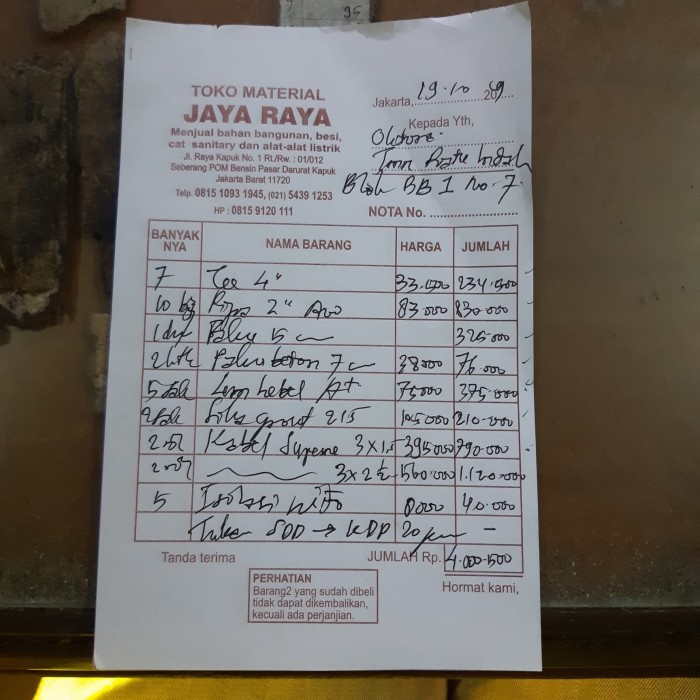 95
TOKO MATERIAL
JAYA RAYA
Menjual bahan bangunan, besi,
cat sanitary dan alat-alat listrik
Jl. Raya Kapuk No. 1 Rt./Rw. : 01/012
Seberang POM Bensin Pasar Darurat Kapuk
Jakarta Barat 11720
Telp. 0815 1093 1945, (021) 5439 1253
HP : 0815 9120 111
Jakarta, 19.10 2019
Kepada Yth,
Indah
Blok BB I No. 7
NOTA No.
BANYAK NYA NAMA BARANG HARGA JUMLAH
7 Tee 4" 33.500 234.500
10 Pipa 2" 83.000 830.000
1 Paku 15 cm 325.000
2 Paku beton 7 cm 38000 76.000
5 Lem hebel A+ 75000 375.000
2 Sika grout 215 105000 210.000
2 Kabel Supreme 3x1,5 395000 790.000
2 3x2½ 560.000 1.120.000
5 Isolasi Nitto 8000 40.000
Tukar SDD → KDP 20 -
Tanda terima JUMLAH Rp. 4.000.500
PERHATIAN
Barang2 yang sudah dibeli
tidak dapat dikembalikan,
kecuali ada perjanjian.
Hormat kami,